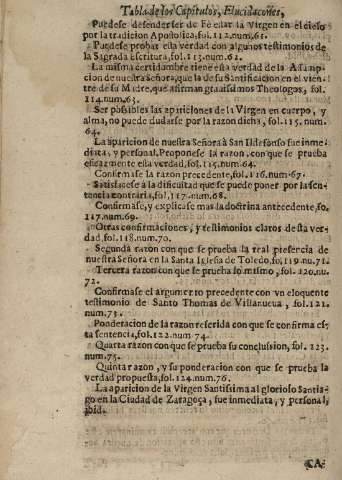 Tabla de los Capitulos, Elucidaciones,
Puedese defenderser de Fè estar la Virgen en el cielo
por la tradicion Apostolica, fol. 112. num. 61.
Puedese probar esta verdad con algunos testimonios de
la Sagrada Escritura, fol. 113. num. 62.
La misma certidumbre tiene esta verdad de la Assump-
cion de nuestra Señora, que la de su Santificacion en el vien-
tre de su Madre, que afirman gravissimos Theologos, fol.
114. num. 63.
Ser possibles las apariciones de la Virgen en cuerpo, y
alma, no puede dudarse por la razon dicha, fol. 115. num.
64.
La aparicion de nuestra Señora à San Ildefonso fue inme-
diata, y personal. Proponese la razon, con que se prueba
eficazmente esta verdad, fol. 115. num. 64.
Confirmase la razon precedente, fol. 116. num. 67.
Satisfacese à la dificultad que se puede poner por la sen-
tencia contraria, fol. 117. num. 68.
Confirmase, y explicase mas la doctrina antecedente, fo.
117. num. 69.
Otras confirmaciones, y testimonios claros desta ver-
dad, fol. 118. num. 70.
Segunda razon con que se prueba la real presencia de
nuestra Señora en la Santa Iglesia de Toledo, fo. 119. nu. 71.
Tercera razon con que se prueba lo mismo, fol. 120. nu.
72.
Confirmase el argumento precedente con vn eloquente
testimonio de Santo Thomas de Villanueua, fol. 121.
num. 73.
Ponderacion de la razon referida con que se confirma es-
ta sentencia, fol. 122. num. 74.
Quarta razon con que se prueba su conclusion, fol. 123.
num. 75.
Quinta razon, y su ponderacion con que se prueba la
verdad propuesta, fol. 124. num. 76.
La aparicion de la Virgen Santissima al glorioso Santia-
go en la Ciudad de Zaragoça, fue inmediata, y personal,
ibid.
CA-